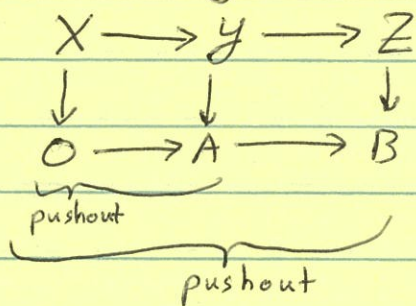 X → Y → Z
↓ ↓ ↓
O → A → B
pushout
pushout